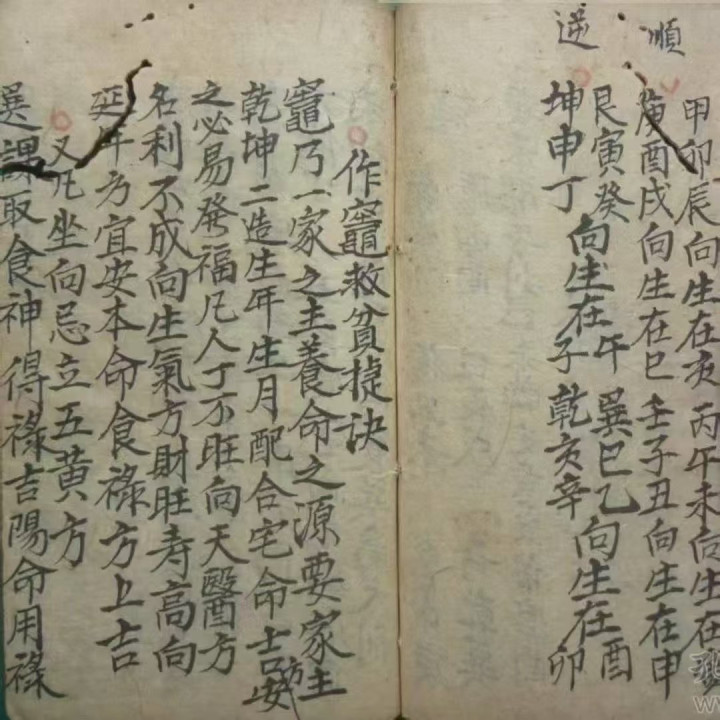 順
逆
甲卯辰向生在亥 丙午未向生在
庚酉戌向生在巳 壬子丑向生在申
艮寅癸向生在午 巽巳乙向生在酉
坤申丁向生在子 乾亥辛向生在卯
作竈救貧捷訣
竈乃一家之主養命之源要家主
乾坤二造生年生月配合宅命吉方安
之必易發福凡人丁不旺向天醫方
名利不成向生氣方財旺壽高向
延年方宜安本命食祿方上吉
又凡坐向忌立五黃方
巽課取食神得祿吉陽命用祿